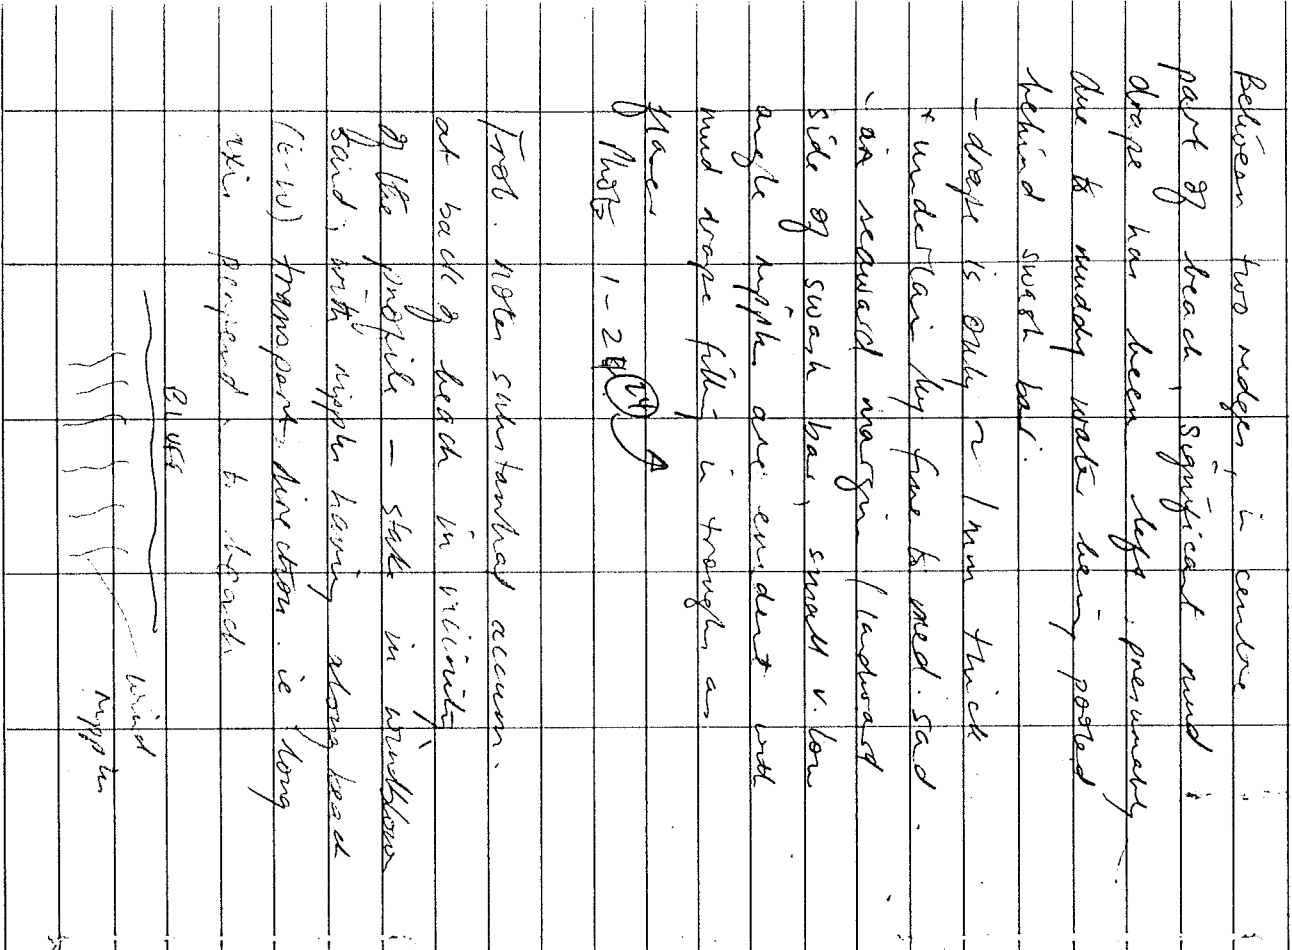 Between two ridges, in centre
part of beach, significant mud
drape has been left. presumably
due to muddy water being pooled
behind swash bar.
- drape is only ~ 1mm thick
+ underlain by fine to med. sad.
- on seaward margin / landward
side of swash bar, small v. low
angle ripples are evident with
mud drape filling in troughs as
Photo 1-2 24
Trob. notes substantial accum.
at back of beach in vicinity
of the profile - stake in windblown
sand, with ripples having along beach
(E-W) transport direction. ie long
axis perpend. to beach
BLUFF
wind
ripples